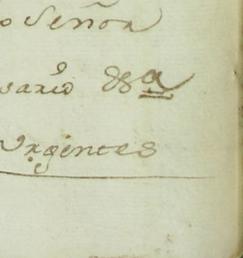 o Señor
sario
Urgentes